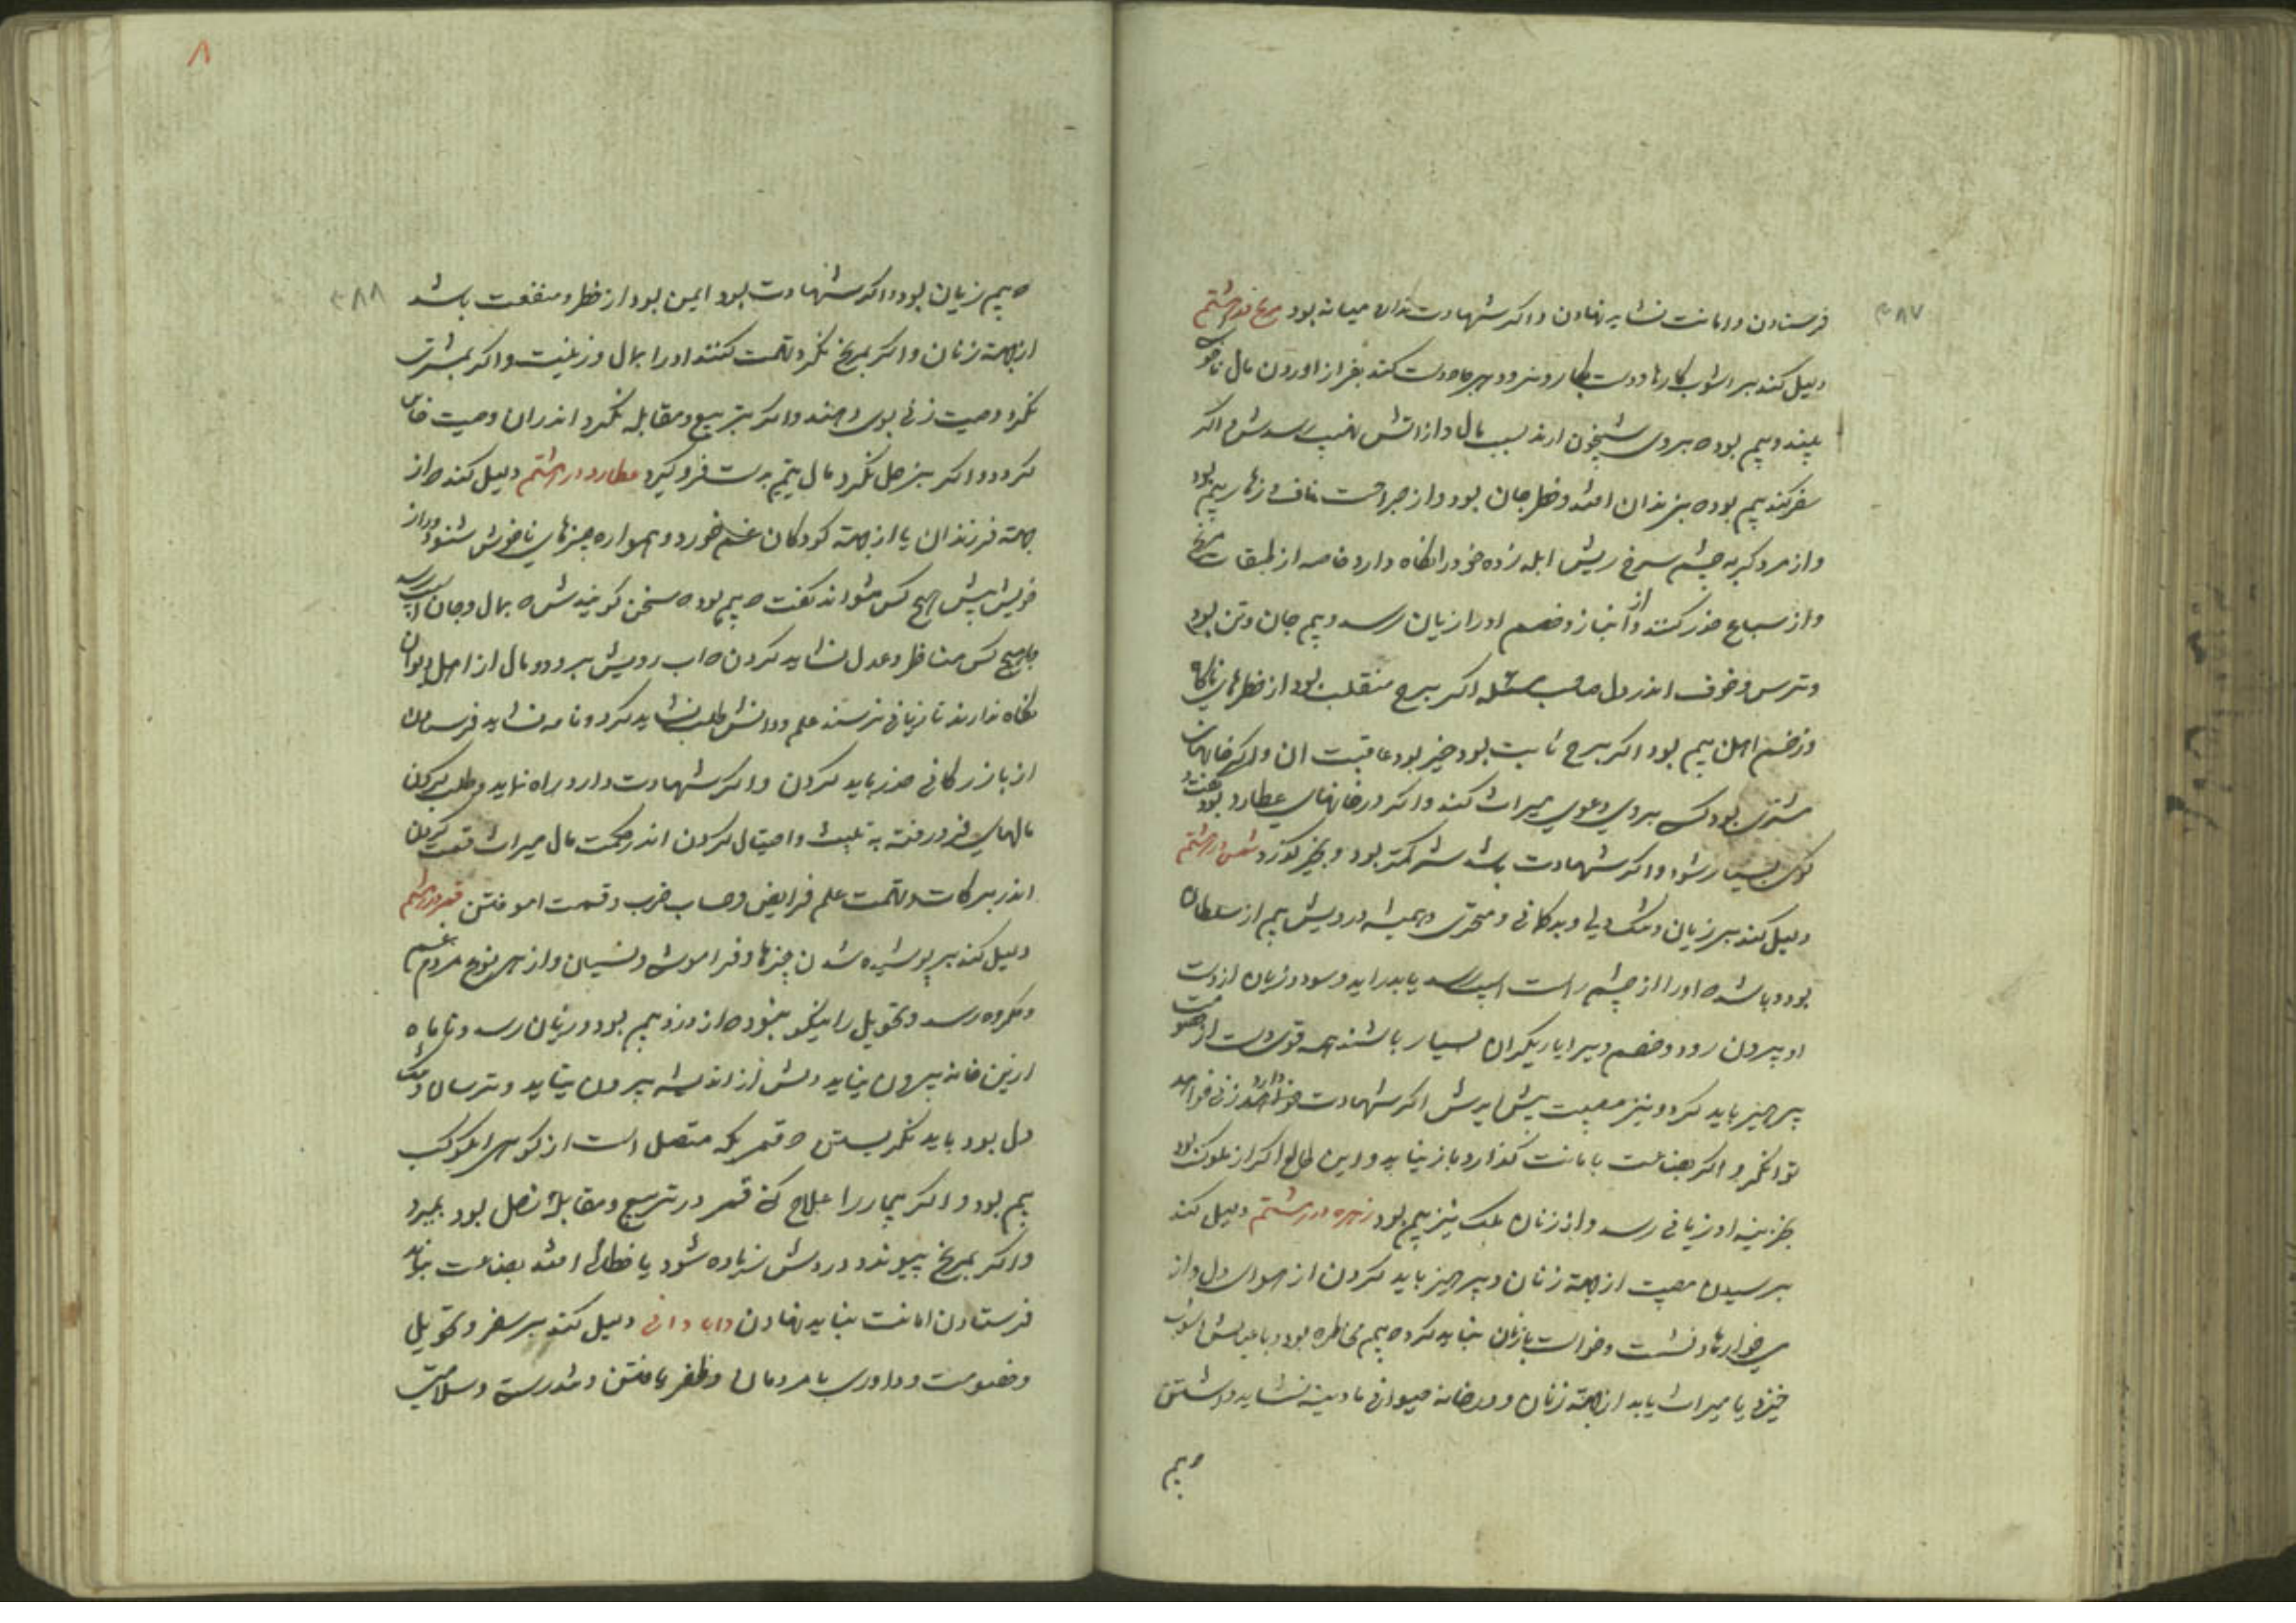 ۳۸۷
فرستادن و امانت نشاید نهادن و اگر شهادت ندارد میانه بود مریخ در هشتم
دلیل کند بر اشوب کارها و دست بکار و نبرد کند بغرز اوردن مال
بیم بود که بروی شبیخون ارند بسبب مال و از اتش نهیب رسدش اگر
سفر کند بیم بود که بزندان افتد و خطر جان بود و از جراحت و زهار بیم بود
و از مرد کربه چشم سرخ ریش ابله زده خود را نگاه دارد خاصه از طبقات مریخ
و از سباع حذر کند و از انباز و خصم او را زیان رسد و بیم جان و تن بود
و ترس و خوف اندر دل صاحب مسئله اگر برج منقلب بود از خطرهای ناگاه
و زخم اهن بیم بود اگر برج ثابت بود خیر بود عاقبت ان و اگر خانهای
مشتری بود کسی بروی دعوی میراث کند و اگر در خانهای عطارد بود
بسیار شود و اگر شهادت باشد شر کمتر بود و بخیر گذرد شمس در هشتم
دلیل کند بر زیان و تنک دلی و بدگمانی و متحیری و همیشه درویش بیم از سلطان
بود و باشد که او را از چشم راست اسیب رسد یا بدر اید و سود و زیان از دست
او بیرون رود و خصم و بیرایا ریگران بسیار باشند همه قوی دست از خصومت
پرهیز باید کرد و نیز مصیبت پیش ایدش اگر شهادت دارد زنی خواهد
توانگر و اگر بضاعت بامانت گذارد باز نیاید و این طالع اگر از ملوک بود
بخزینه او زیانی رسد و از زنان ملک نیز بیم بود زهره در هشتم دلیل کند
بر رسیدن مصیبت از جهة زنان و پرهیز باید کردن از هوای دل و از
می خوارها و نشست و خواست با زنان نباید کرد که بیم مخاطره بود و با عیالش اشوب
خیزد یا میراث یابد از جهة زنان و در خانه حیوانی مادینه نشاید داشتن
که بیم
۸
۳۸۸
که بیم زیان بود و اگر شهادت بود ایمن بود از خطر و منفعت باشد
از جهة زنان و اگر بمریخ نگرد تهمت کنند او را بمال وزنیت و اگر بمشتری
نگرد وصیت زنی بوی دهند و اگر بتربیع و مقابله نگرد اندران وصیت خاین
گردد و اگر بزحل نگرد مال یتیم بدست فرو گیرد عطارد در هشتم دلیل کند که از
جهة فرزندان یا از جهة کودکان غم خورد و همواره چیزهای ناخوش شنود و راز
خویش پیش هیچ کس نتواند گفت که بیم بود که سخن گویندش که بمال و جان اسیب رسد
با هیچ کس مناظره و جدل نشاید کردن که اب رویش ببرد و مال از اهل دیوان
نگاه ندارند تا زیانی نرسند علم و دانش طلب نشاید کرد و نامه نشاید فرستادن
از بازرگانی حذر باید کردن و اگر شهادت دارد راه نماید و طلب کردن
مالهای فرو رفته به تلبیث و احتیال کردن اندر حکمت مال میراث قسمت کردن
اندر برکات و تهمت علم فرایض و حساب ضرب و قسمت اموختن قمر در هشتم
دلیل کند بر پوشیده شدن چیزها و فراموشی و نسیان و از هر نوع مردم غم
و مکروه رسد و تحویل را نیکو نبود که از دزد بیم بود و زیان رسد و تا ماه
ازین خانه بیرون نیاید دلش از اندیشه بیرون نیاید و ترسان و تنک
دل بود باید نگریستن که قمر بکه متصل است از گوهر ان کوکب
بیم بود و اگر بیمار را علاج کنی قمر در تربیع و مقابله زحل بود بمیرد
و اگر بمریخ پیوندد دردش زیاده شود یا خطائی افتد بضاعت نباید
فرستادن امانت نباید نهادن دلیل کند بر سفر و تحویل
و خصومت و داوری با مردمان و ظفر یافتن و تندرستی و سلامتی